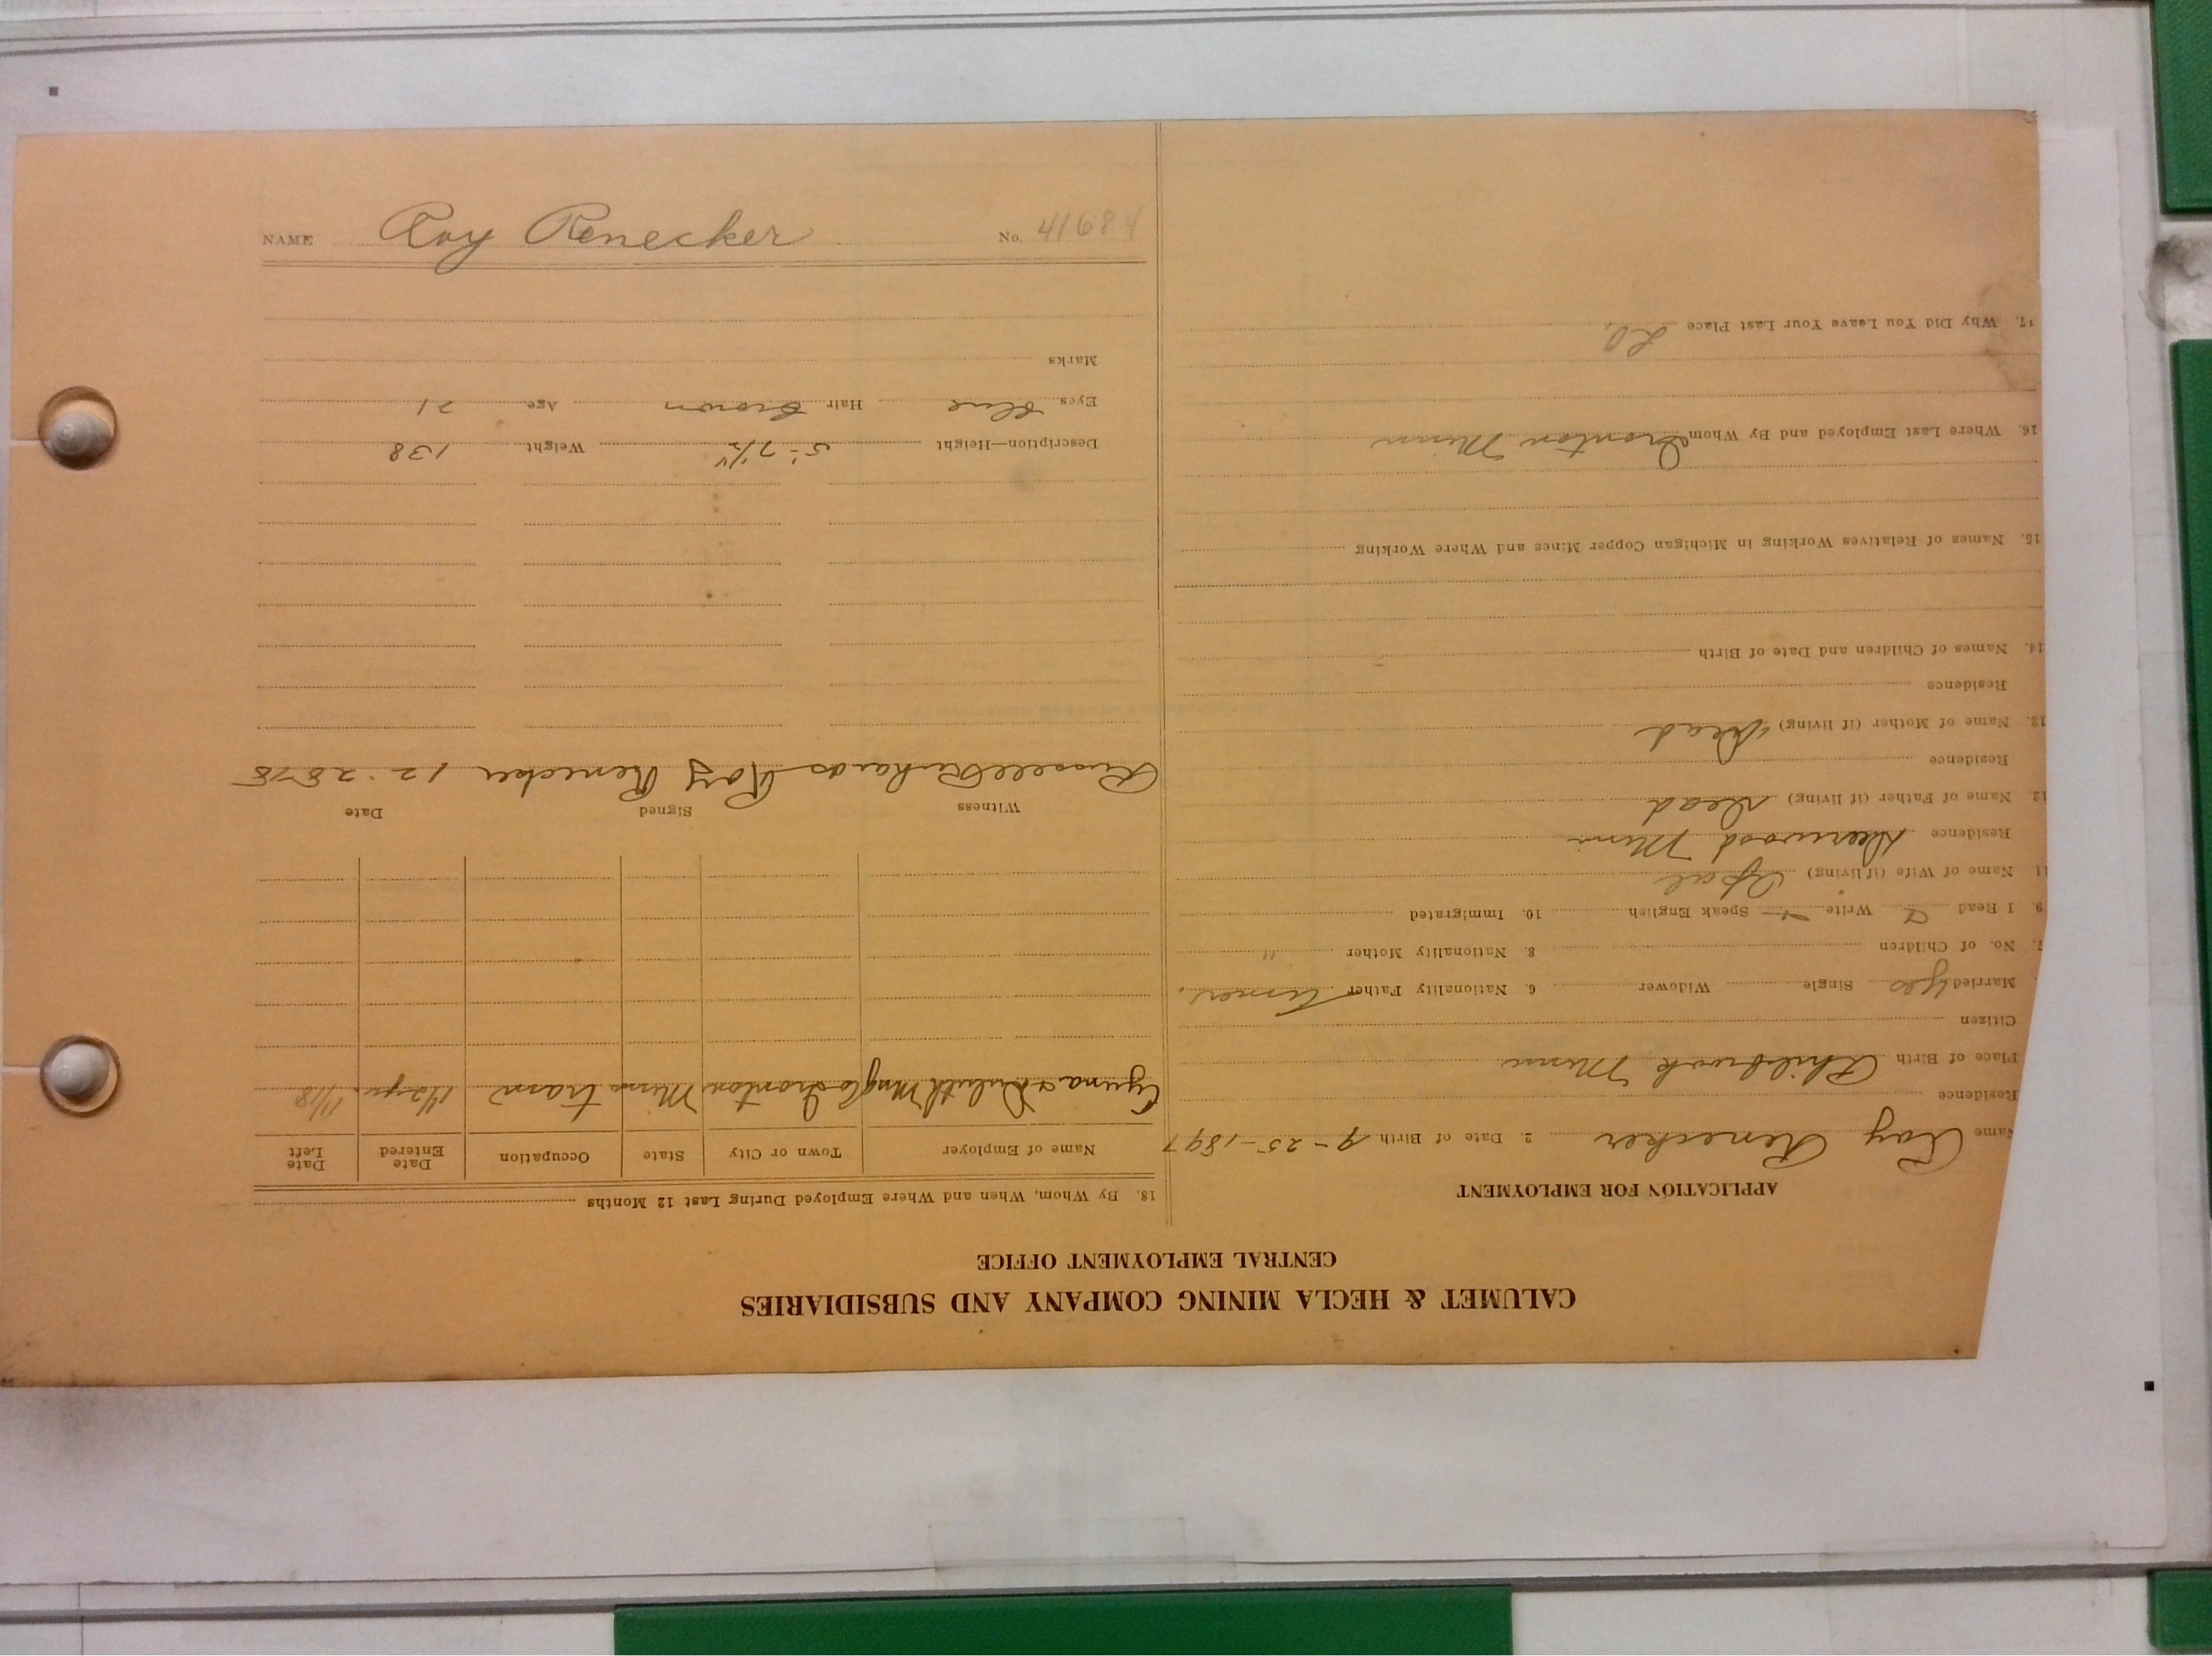 CALUMET & HECLA MINING COMPANY AND SUBSIDIARIES
CENTRAL EMPLOYMENT OFFICE
APPLICATION FOR EMPLOYMENT
Name Roy Renecker 2. Date of Birth 9-25-1897
Residence
Place of Birth Philbrook Minn
Citizen
Married yes Single Widower 6. Nationality Father Amer.
7. No. of Children 8. Nationality Mother "
9. I Read Write Speak English 10. Immigrated
11. Name of Wife (if living) Opal
Residence Deerwood Minn
12. Name of Father (if living) Dead
Residence
13. Name of Mother (if living) Dead
Residence
14. Names of Children and Date of Birth
15. Names of Relatives Working in Michigan Copper Mines and Where Working
16. Where Last Employed and By Whom Ironton Minn
17. Why Did You Leave Your Last Place
18. By Whom, When and Where Employed During Last 12 Months
Name of Employer Town or City State Occupation Date Entered Date Left
Cyuna & Duluth Mng Co Ironton Minn tram 1 1/2 yr. 11/18
Witness Signed Date
Russell Richards Roy Renecker 12-28-18
Description—Height 5'-7 1/2" Weight 138
Eyes Blue Hair Brown Age 21
Marks
NAME Roy Renecker No. 41684